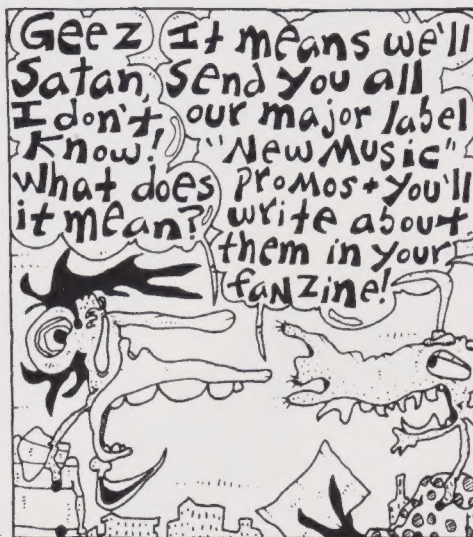 Geez
Satan,
I don't
know!
What does
it mean?
It means we'll
send you all
our major label
"New Music"
promos + you'll
write about
them in your
fanzine!